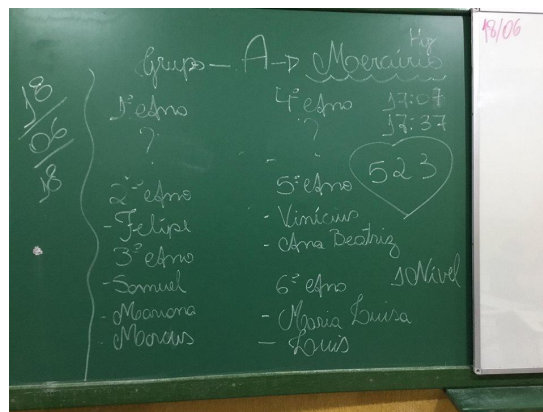 18/06
Hg
Grupo - A -> Mercúrio
18/06/18
1º Ano
?
2º Ano
- Felipe
3º Ano
- Samuel
- Mariana
- Marcus
4º Ano
?
-
5º Ano
- Vinícius
- Ana Beatriz
6º Ano
- Maria Luisa
- Luis
17:07
17:37
523
1º Nível